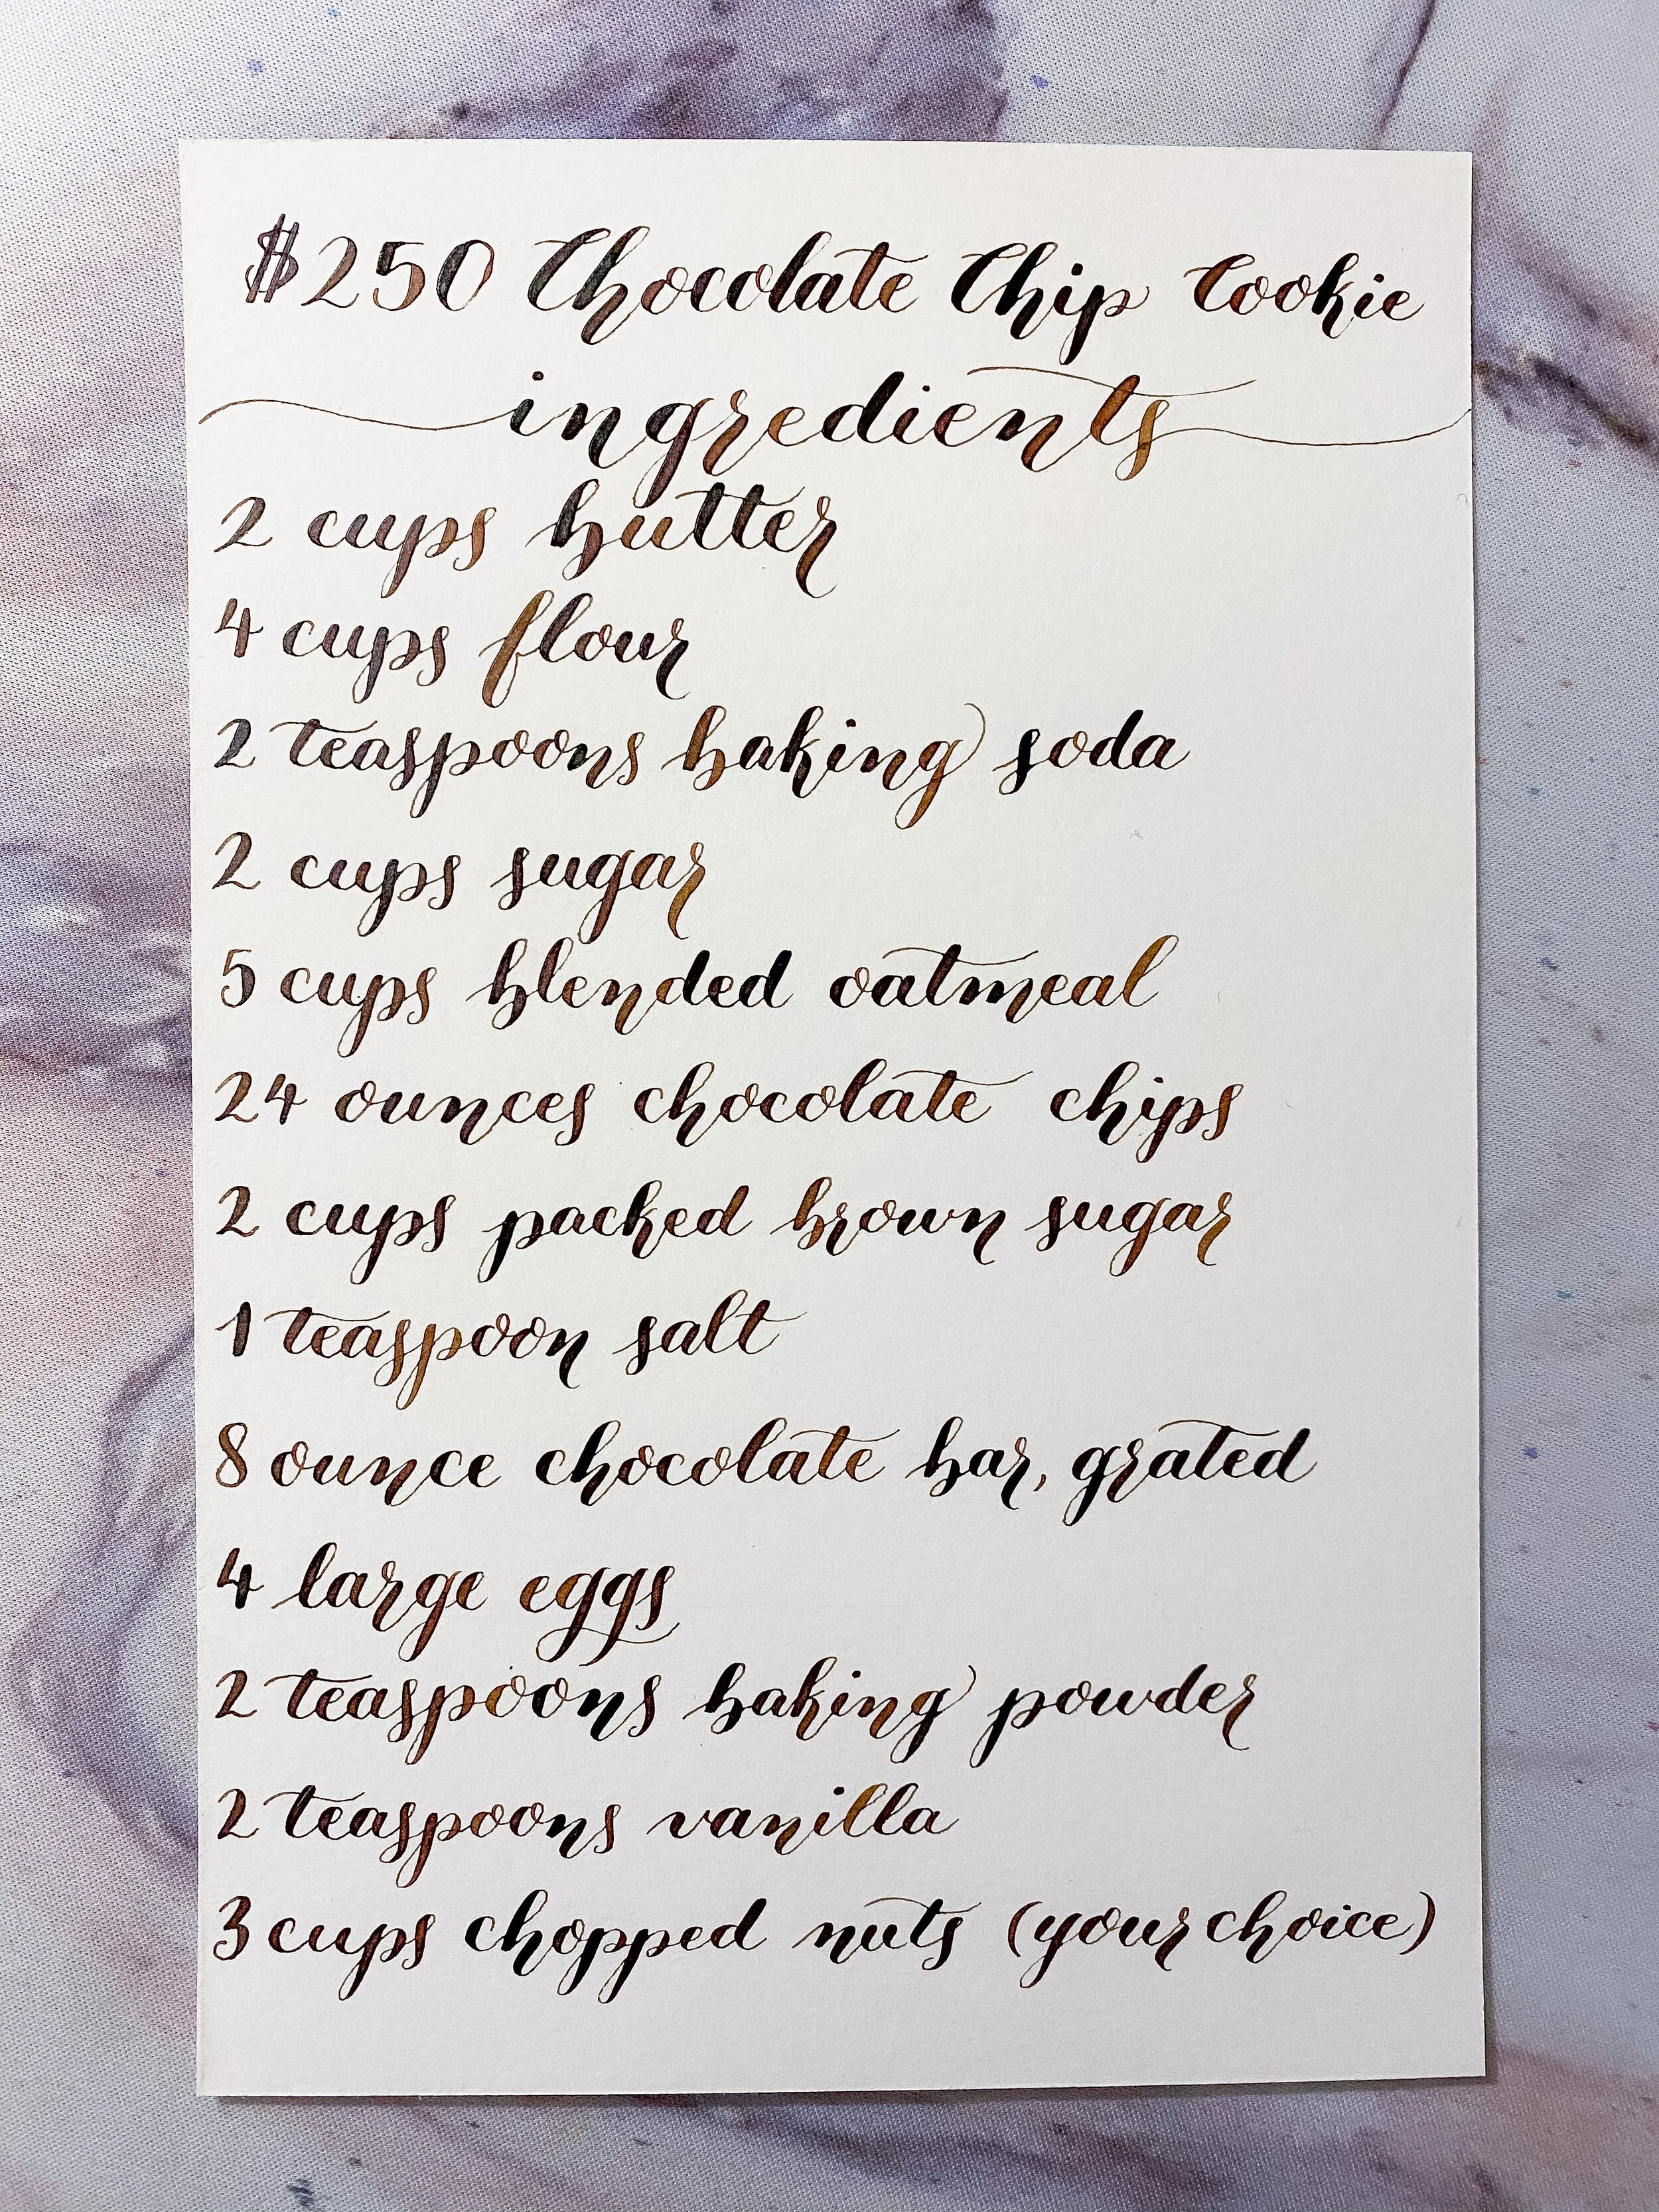 $250 Chocolate Chip Cookie
ingredients
2 cups butter
4 cups flour
2 teaspoons baking soda
2 cups sugar
5 cups blended oatmeal
24 ounces chocolate chips
2 cups packed brown sugar
1 teaspoon salt
8 ounce chocolate bar, grated
4 large eggs
2 teaspoons baking powder
2 teaspoons vanilla
3 cups chopped nuts (your choice)